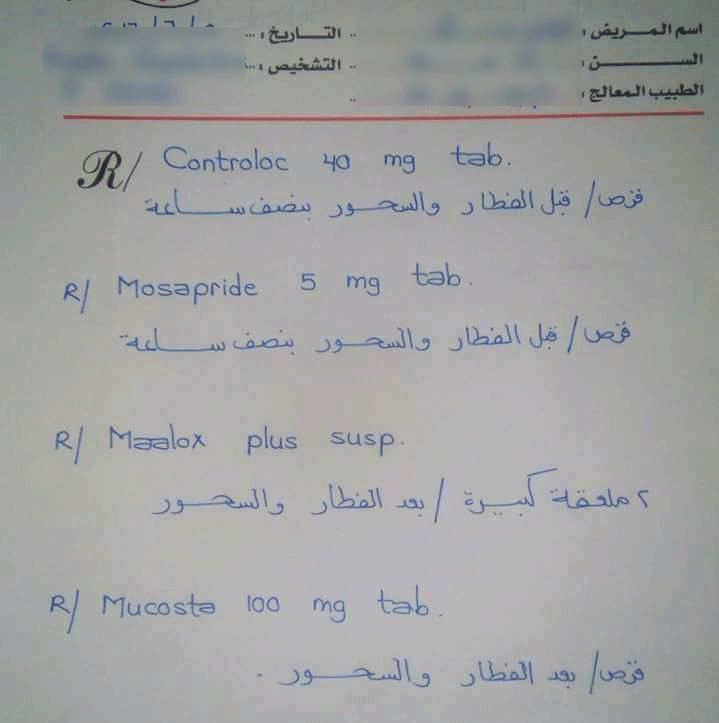 اسم المـــريض : .. التـــاريخ : ...
الســـــــن : .. التشخيص : ...
الطبيب المعالج : ..
R/ Controloc 40 mg tab.
قرص/ قبل الفطار والسحور بنصف ساعة
R/ Mosapride 5 mg tab.
قرص/ قبل الفطار والسحور بنصف ساعة
R/ Maalox plus susp.
٢ ملعقة كبيرة / بعد الفطار والسحور
R/ Mucosta 100 mg tab.
قرص/ بعد الفطار والسحور .